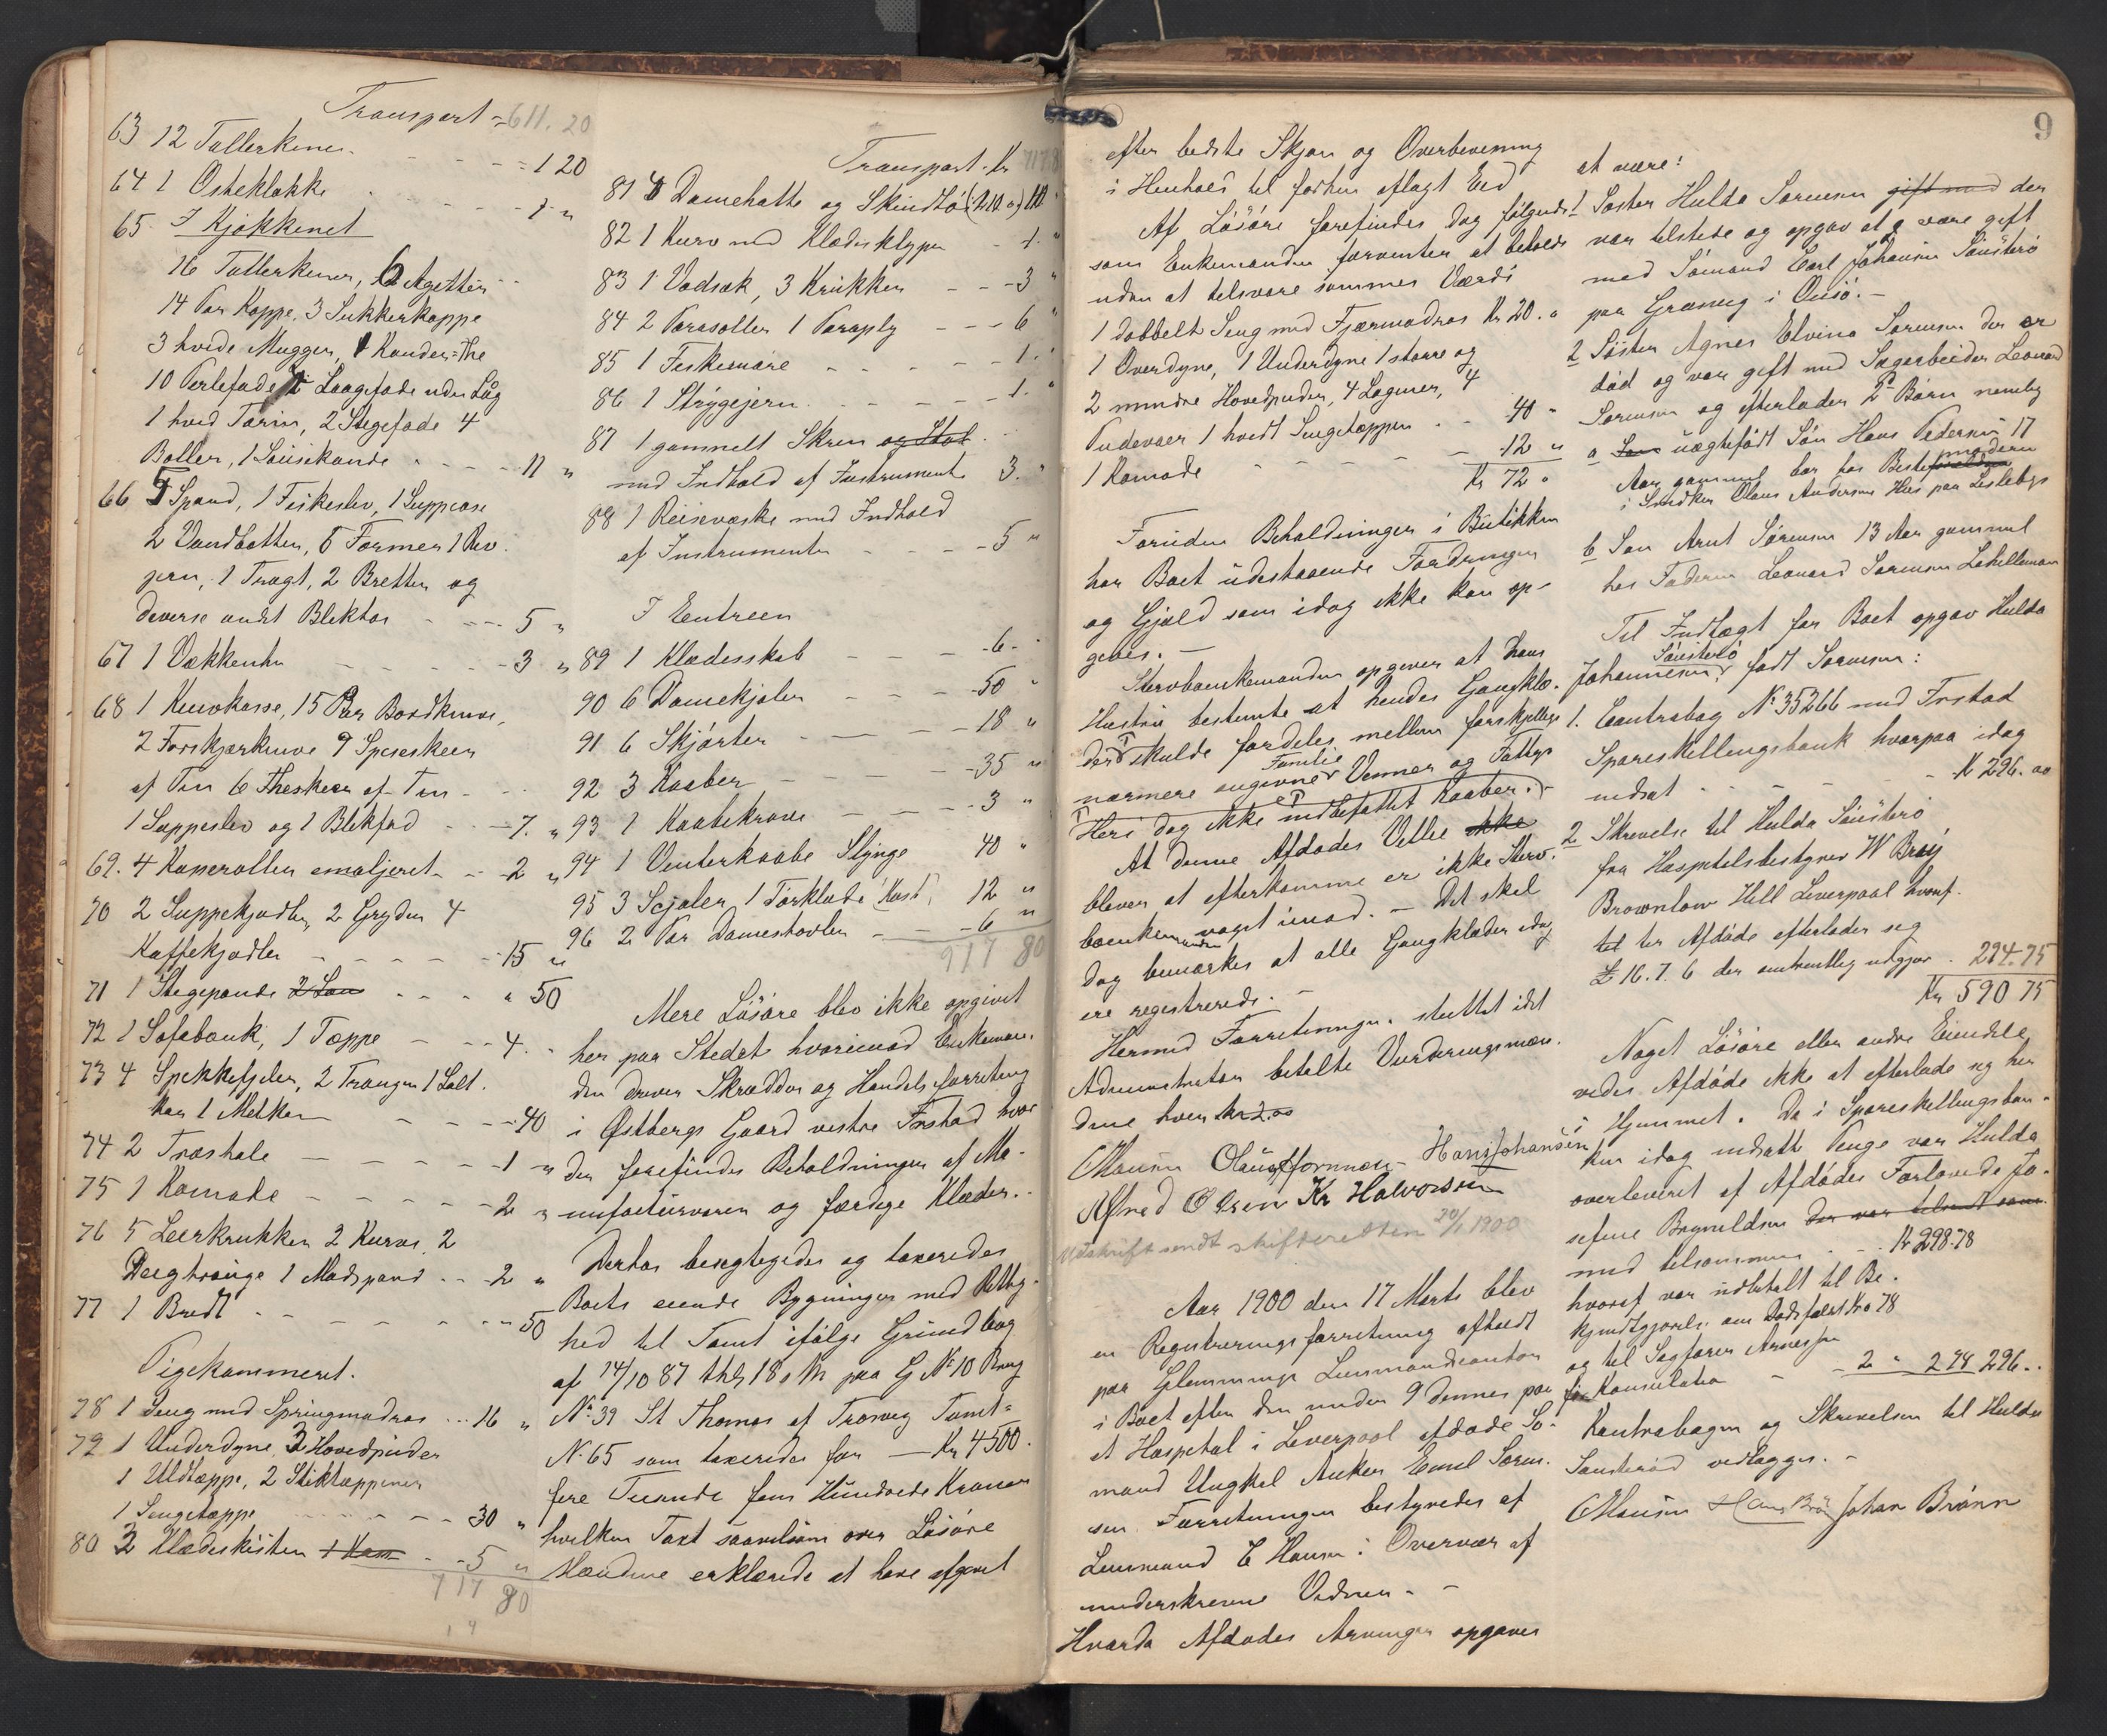 Transport = 611.20
63 12 Tallerkener - - - - = 1 20
64 1 Osteklokke - - - - 1 "
65 I Kjøkkenet
16 Tallerkener, 6 Asjetter
14 Par Koppe, 3 Sukkerkoppe
3 hvide Mugger, 1 Kander = The
10 Perlefade Laagefade uden Låg
1 hvid Tarin, 2 Stegefade 4
Boller, 1 Sausekande - - - - 11 "
66 5 Spand, 1 Fiskeslev, 1 Suppeøse
2 Vandbøtter, 5 Former 1 Riv
jern, 1 Tragt, 2 Bretter og
diverse andet Bliktøi - - - 5 "
67 1 Vækkeuhr - - - - 3 "
68 1 Knivkasse, 15 Par Bordknive,
2 Forskjærknive 9 Speseskeer
af Tin 6 Theskeer af Tin -
1 Suppeslev og 1 Blikfad - - 7. "
69. 4 Kaseroller emaljeret - - - 2 "
70 2 Suppekjedler, 2 Gryder 4
Kaffekjedler - - - - - 15 "
71 1 Stegepande - - - " 50
72 1 Sofabænk, 1 Tæppe - - - 4. "
73 4 Spekkefjeler, 2 Trauger 1 Salt.
kar 1 Melkar - - - - 40
74 2 Træstole - - - - - 1 "
75 1 Komode - - - - - 2 "
76 5 Leerkrukker 2 Kurve, 2
Deigtrauge 1 Madspand - - 2 "
77 1 Bord - - - - - - 50
Pigekammeret.
78 1 Seng med Springmadras - - 16 "
79 1 Underdyne 3 Hovedpuder
1 Uldtæppe, 2 Stiktæppener
1 Sengetæppe - - - - - 30 "
80 3 Klædeskister - - 5 "
717 80
Transport. Kr 717.8
81 8 Damehatte og Skindtøi 10.
82 1 Kurv med Klædesklyper - 1. "
83 1 Vadsæk, 3 Krukker - - - 3 "
84 2 Parasoller 1 Paraply - - - 6 "
85 1 Fiskesnøre - - - - - 1. "
86 1 Strygejern - - - - - 1. "
87 1 gammelt Skrin og Stol
med Indhold af Instrument 3. "
88 1 Reisevæske med Indhold
af Instrumenter - - - - 5 "
I Entreen
89 1 Klædesskab - - - - 6 -
90 6 Damekjoler - - - - 50 "
91 6 Skjørter - - - - 18 "
92 3 Kaaber - - - - - 35 "
93 1 Kaabekrave - - - - 3 "
94 1 Vinterkaabe Slynge 40 "
95 3 Sejaler 1 Tørklæde 12 "
96 2 Par Damestøvler - - - 6 "
917 80
Mere Løsøre blev ikke opgivet
her paa Stedet hvorimod Enkeman-
den driver Skrædder og Handelsforretning
i Østbergs Gaard vestre Frstad hvor
der forefindes Beholdninger af Ma-
nufacturvarer og færdige Klæder.
Derfor besigtigedes og taxeredes
Boets eiende Bygninger med Rettig-
hed til Tomt ifølge Grundbog
af 14/10 87 thl. 18 s m paa G N 10 Brug
N. 39 St Thomas af Trosvig Tomt =
N. 65 som taxeredes for - Kr 4500.
fire Tusinde fem Hundrede Kroner
hvilken Taxt saavelsom over Løsøre
Mændene erklærede at have afgivet
9
efter bedste Skjøn og Overbevisning
i Henhold til forhen aflagt Eed
Af Løsøre forefindes dog følgende
som Enkemanden forventer at beholde
uden at tilsvare sammes Værdi
1 dobbelt Seng med Fjærmadras Kr 20. "
1 Overdyne, 1 Underdyne 1 større og
2 mindre Hovedpuder, 4 Lagener, 4
Pudevaer 1 hvidt Sengetæppe - - 40 "
1 Komode - - - - - - 12 "
Kr 72 "
Foruden Beholdningen i Butikken
har Boet udestaaende Fordringer
og Gjæld som idag ikke kan op-
gives. -
Stervboenkemanden opgiver at hans
Hustru bestemte at hendes Gangklæ-
der skulde fordeles mellem forskjellige
nærmere angivne Familie Venner og Fattige
Heri dog ikke indbefattet Kaaber. -
At denne Afdødes Villie ikke
bliver at efterkomme er ikke Sterv-
boenkemanden noget imod. - Det skal
dog bemærkes at alle Gangklæder idag
ere registrerede. -
Hermed Forretningen sluttet idet
Administrator betalte Vurderingsmæn-
dene hver kr 2.00
CHansen Olaus Hornnæs - Hans Johansen
Alfred Olsen Kr Halvorsen
Udskrift sendt skifteretten 20/1 1900
Aar 1900 den 17 Marts blev
en Registreringsforretning afholdt
paa Glemminge Lensmandscontor
i Boet efter den under 9 dennes paa
et Hospital i Liverpool afdøde Sø-
mand Ungkal Anker Emil Søren-
sen. Forretningen bestyredes af
Lensmand C Hansen i Overvær af
underskrevne Vidner. -
Hvorda Afdødes Arvinger opgaves
at være:
1 Søster Hulda Sørensen gift med der
var tilstede og opgav at være gift
med Sømand Carl Johansen Sønsterø
paa Græsvig i Onsø. -
2 Søster Agnes Elvina Sørensen der er
død og var gift med Sagarbeider Leonard
Sørensen og efterlader 2 Børn nemlig
a uægtefødt Søn Hans Pedersen 17
Aar gammel bor hos Bestemoderen
i Snedker Olaus Andersens Hus paa Lislebys
b Søn Arnt Sørensen 13 Aar gammel
hos Faderen Leonard Sørensen Lahelleman
Til Indtægt for Boet opgav Hulda
Johannesen Sønsterø, født Sørensen:
1. Contrabog N. 35266 med Frstad
Spareskillingsbank hvorpaa idag
indsat - - - - K 296. 00
2 Skrivelse til Hulda Sønsterø
fra Hospitalsbestyrer W Bray
Brownlow Hill Liverpool hvoref-
ter Afdøde efterlader sig
£ 16. 7. 6 der omtrentlig udgjør - 294.75
Kr 590 75
Noget Løsøre eller andre Eiendele
vides Afdøde ikke at efterlade sig her
i Hjemmet. De i Spareskillingsban-
ken idag indsatte Penge var Hulda
overleveret af Afdødes Forlovede Jo-
sefine Brynildsen der var tilstede som
med tilsammen - - Kr 298.78
hvoraf var udbetalt til Be-
kjendtgjørelse om Dødsfaldet Kr 0 78
og til Sagfører Arnesen
for Konsulation - - 2 " 2 78 296..
Kontrabogen og Skrivelsen til Hulda
Sønsterød vedlægges. -
CHansen Johan Brønn